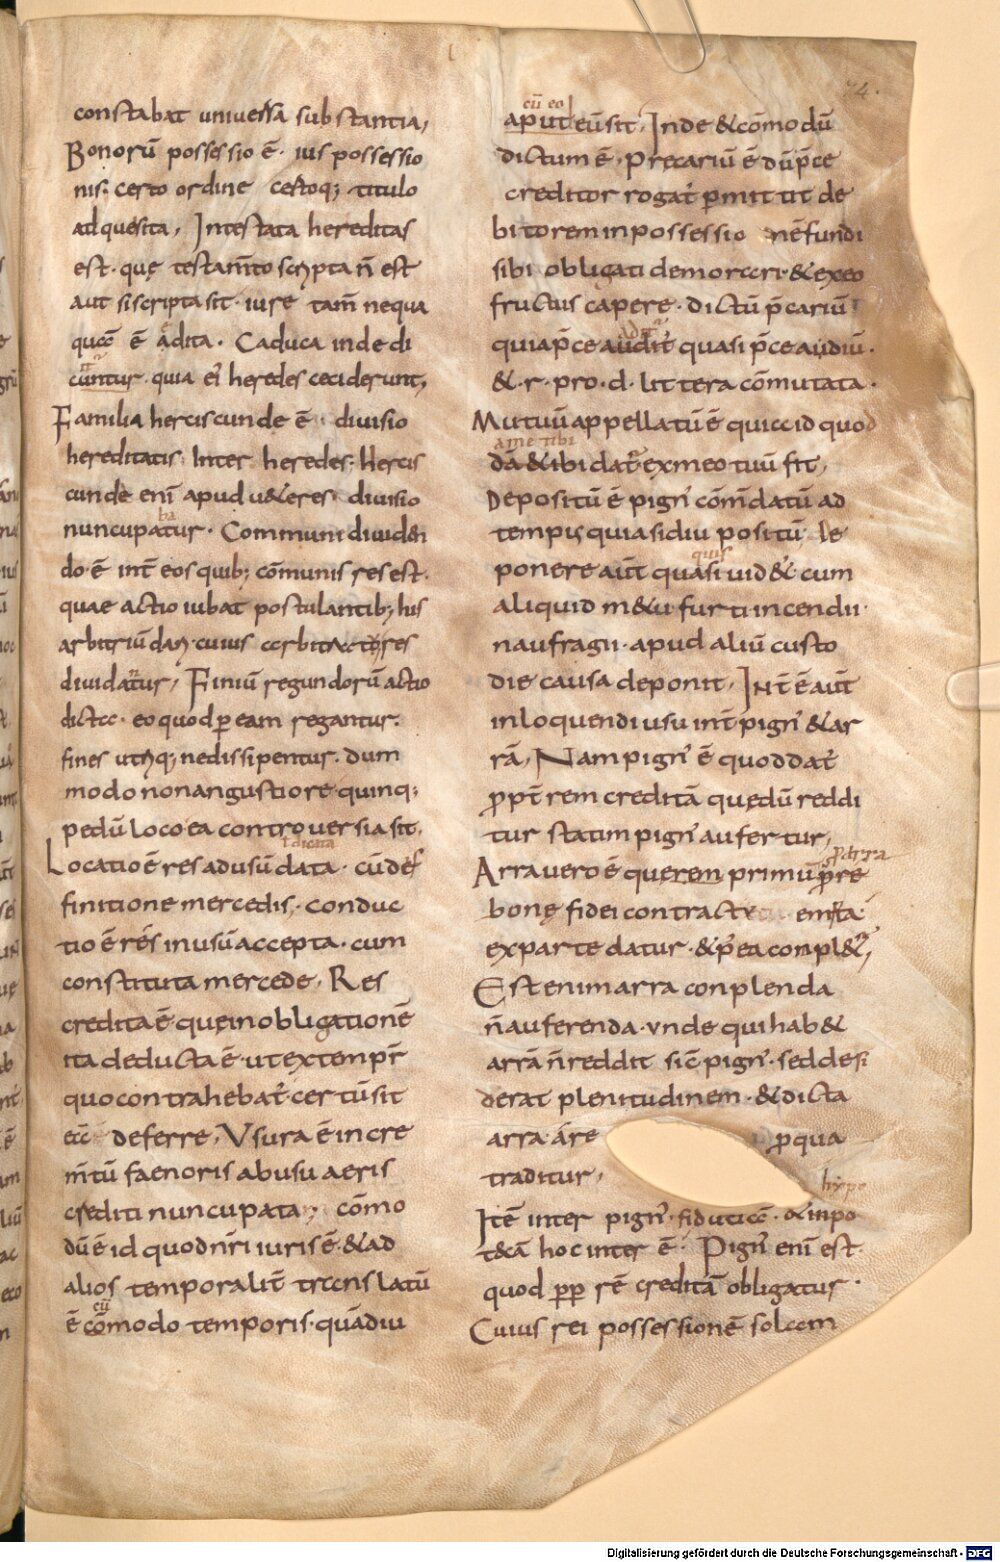 constabat universa substantia,
Bonorū possessio ē· ius possessio
nis· certo ordine certoq; titulo
adquesita, Intestata hereditas
est· quę testam̄to scripta n̄ est
aut si scripta sit· iure tam̄ nequa
ē adita· Caduca inde di
cuntur· quia ei' heredes ceciderunt,
Familia herciscunde ē· divisio
hereditatis· Inter heredes· Hercis
cunde eni apud u&eres· divisio
ba
nuncupatur· Communi dividen
do ē int̄ eos quib; cōmunis res est·
quae actio iubat postulantib; his
arbitriū dari· cuius arbitratu res
dividatur, Finiū regundorū actio
dicta· eo quod p eam regantur·
fines utriq; ne dissipentur· dum
modo non angustiore quinq;
pedū loco ea controversia sit·
ł dicata
Locatio ē res ad usū data· cū de
finitione mercedis· conduc
tio ē res in usū accepta· cum
constituta mercede· Res
credita ē que in obligationē
ita deducta ē· ut ex tempr̄
quo contrahebat' certū sit
deferre, Usura ē incre
m̄tū faenoris ab usu aeris
crediti nuncupata; cōmo
dū ē id quod nr̄i iuris ē· & ad
alios temporalit̄ translatū
cū
ē cōmodo temporis· quādiu
74.
cū eo
aput eū sit, Inde & cōmodū
dictum ē, Precariū ē dū p̄ce
creditor rogat' pmittit de
bitorem in possessio nē fundi
sibi obligati demorari· & ex eo
fructus capere· dictū p̄cariū
adit'
quia p̄ce audit' quasi p̄ce audiū·
&· r· pro· d· littera cōmutata·
Mutuū appellatū ē quia id quod
a me tibi
dā & ibi dat' ex meo tuū fit,
Depositū ē pign' cōm̄datū ad
tempus quia si diu positū· De
quis
ponere aūt quasi uid& cum
aliquid m&u furti incendii·
naufragii· apud aliū custo
die causa deponit, Int̄ ē aūt
in loquendi usu int̄ pign' & ar
rā, Nam pign' ē quod dat'
ppt̄ rem creditā que dū reddi
tur statim pign' aufertur,
Arra vero ē que primū p re
bone fidei contractu emta
ex parte datur· & p' ea conpl&',
Est enim arra conplenda
n̄ auferenda· unde qui hab&
arrā n̄ reddit sic̄ pign'· sed desi
derat plenitudinem· & dicta
arra· á re p qua
traditur,
hypo
Itē inter pign'· fiducia· & inpo
t&cā hoc inter ē· Pign' eni est·
quod pp rē creditā obligatur·
Cuius rei possessionē solam
Digitalisierung gefördert durch die Deutsche Forschungsgemeinschaft - DFG